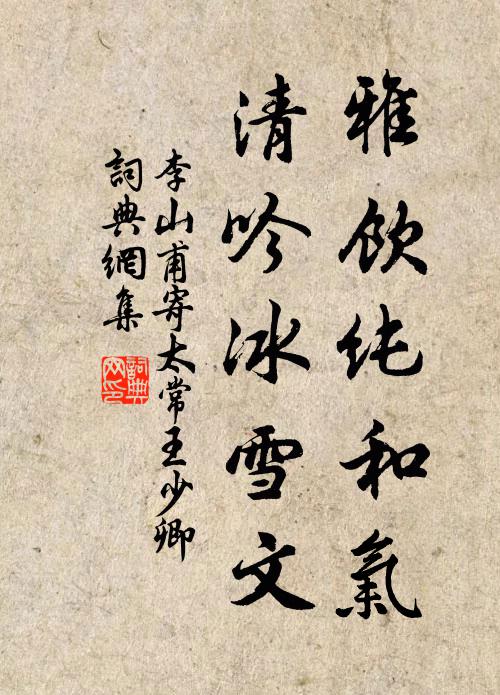 雅飲純和氣
清吟冰雪文
李山甫寄太常王少卿
詞典網集
詞典
网印